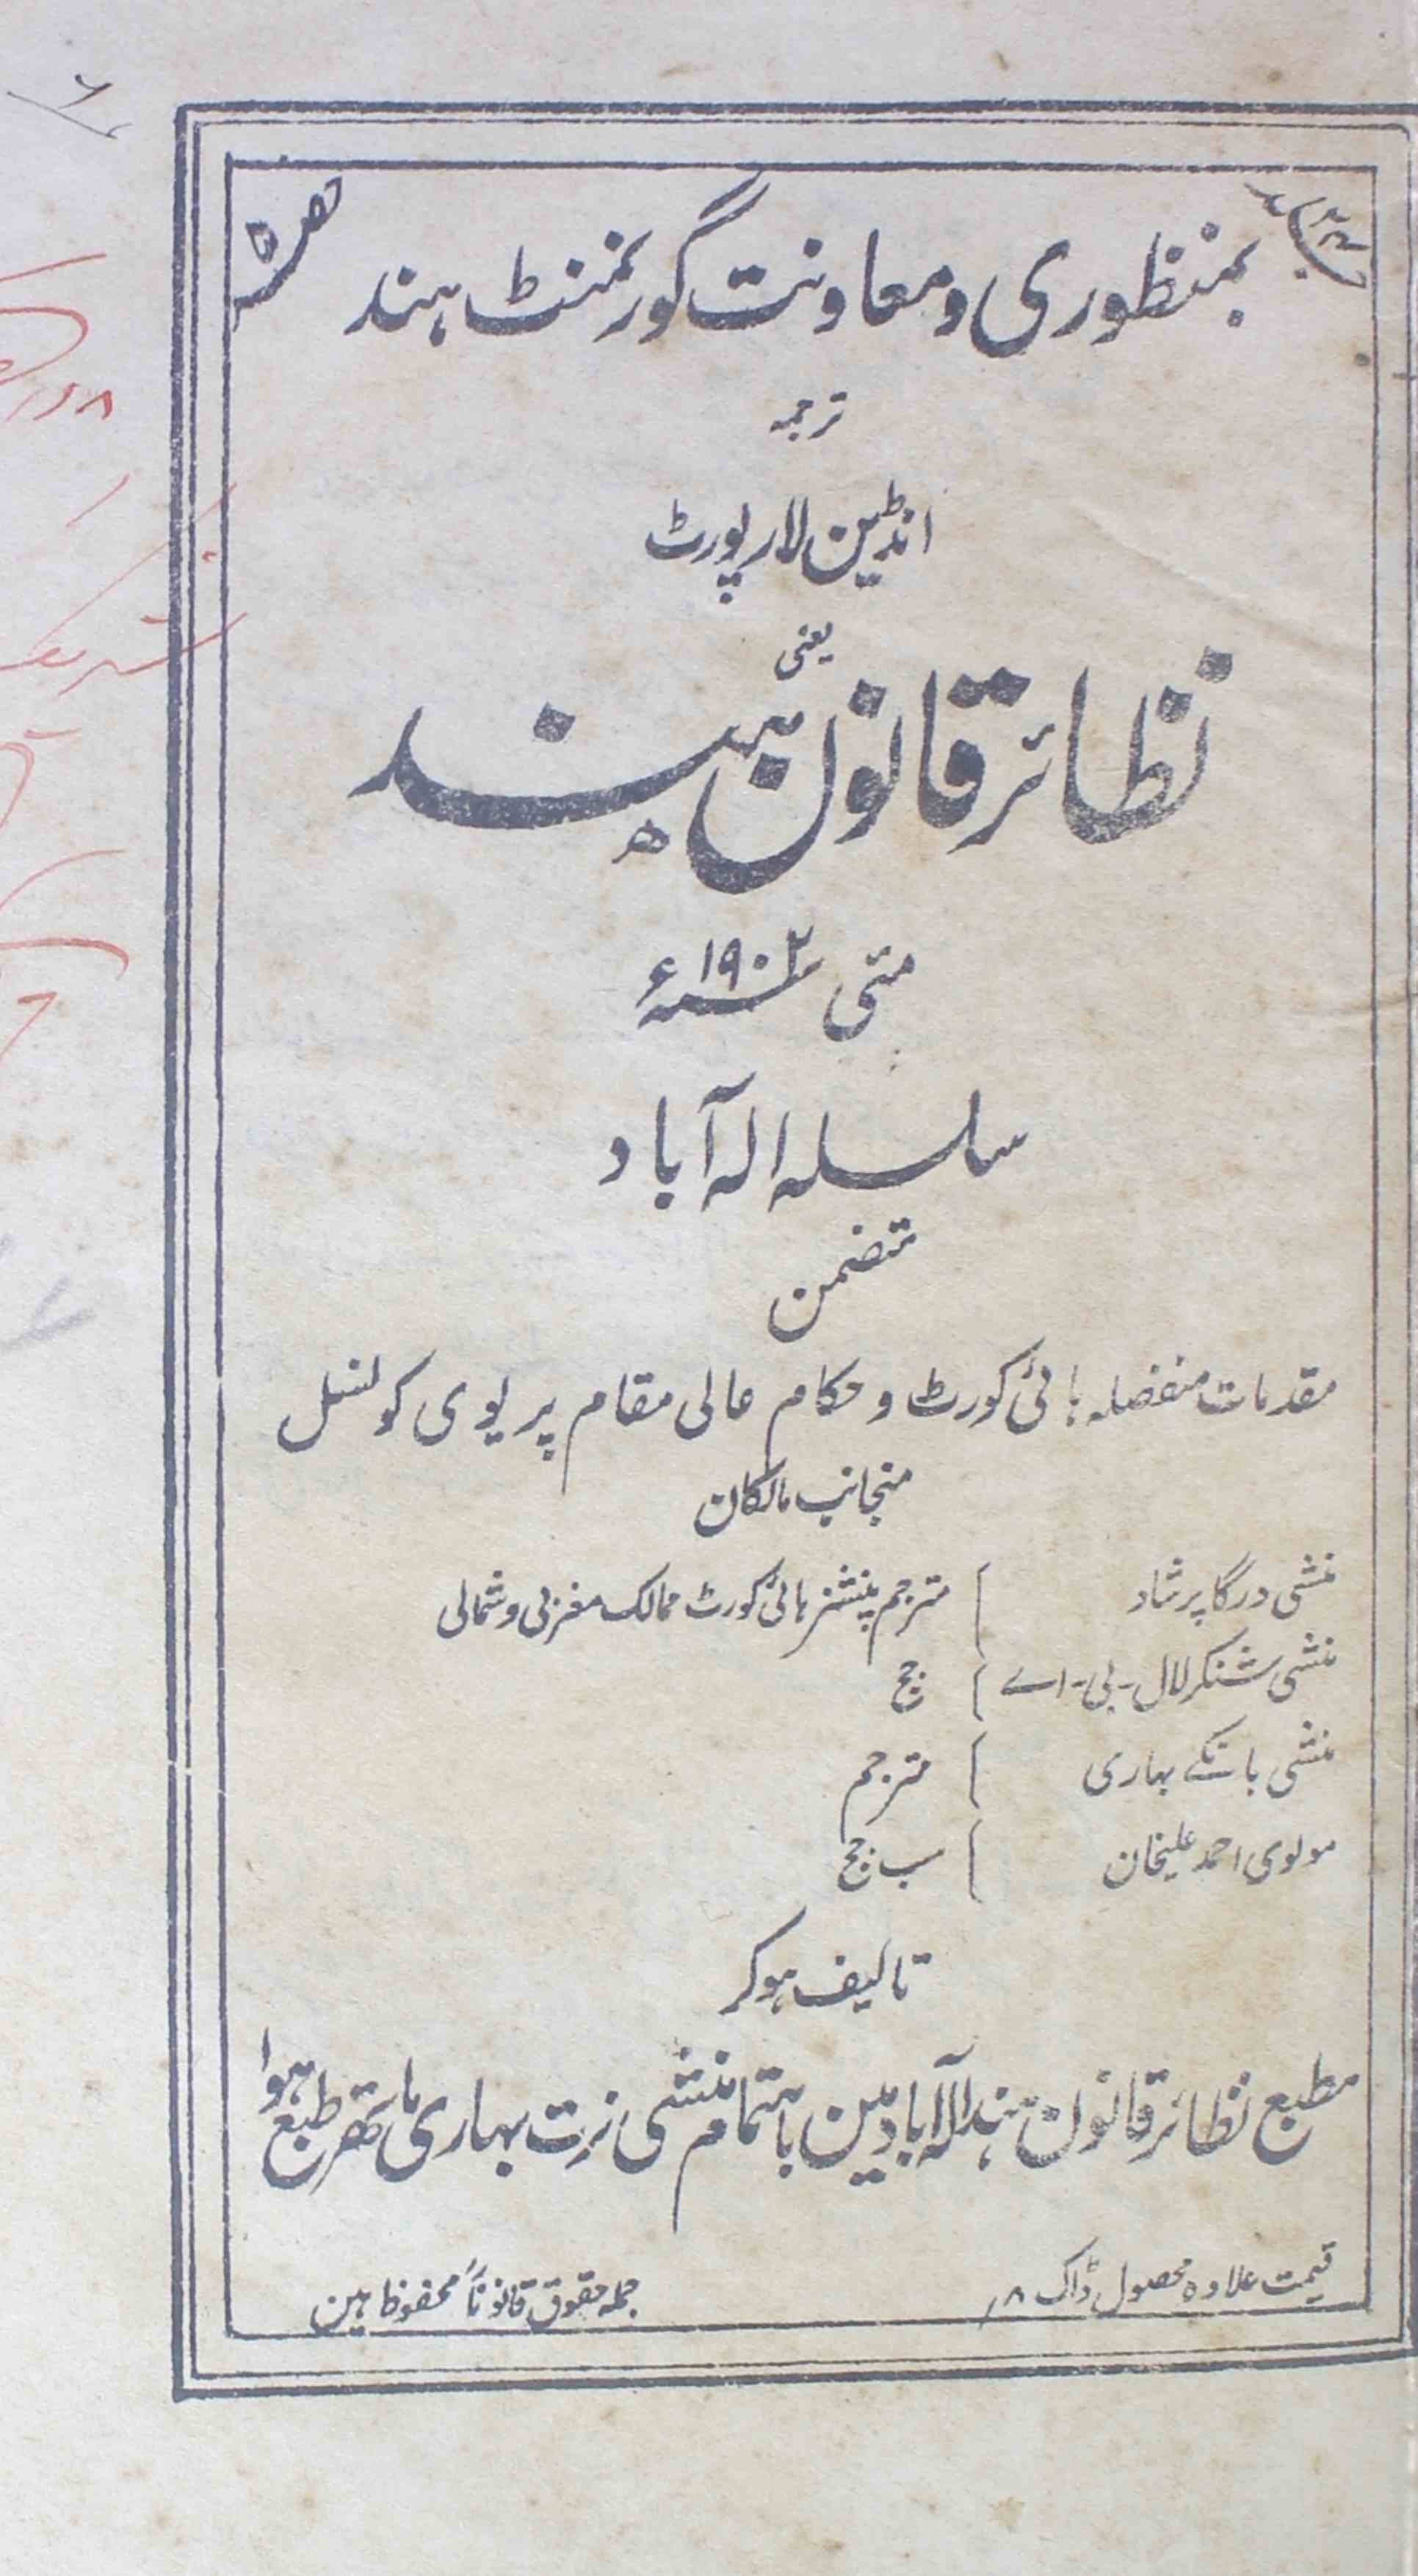 بمنظوری و معاونت گورنمنٹ ہند
ترجمہ
انڈین لا رپورٹ
یعنی
نظائر قانون ہند
مئی ۱۹۰۲ سنہ ء
سلسلہ الہ آباد
متضمن
مقدمات منفصلہ ہائی کورٹ و حکام عالی مقام پریوی کونسل
منجانب مالکان
منشی درگا پرشاد } مترجم پنشنر ہائی کورٹ ممالک مغربی و شمالی
منشی شنکر لال - بی - اے } جج
منشی بانکے بہاری } مترجم
مولوی احمد علیخان } سب جج
تالیف ہوکر
مطبع نظائر قانون ہند الہ آباد مین باہتمام منشی نرت بہاری ماتھر طبع ہوا
قیمت علاوہ محصول ڈاک ۸؍
جملہ حقوق قانوناً محفوظ ہین